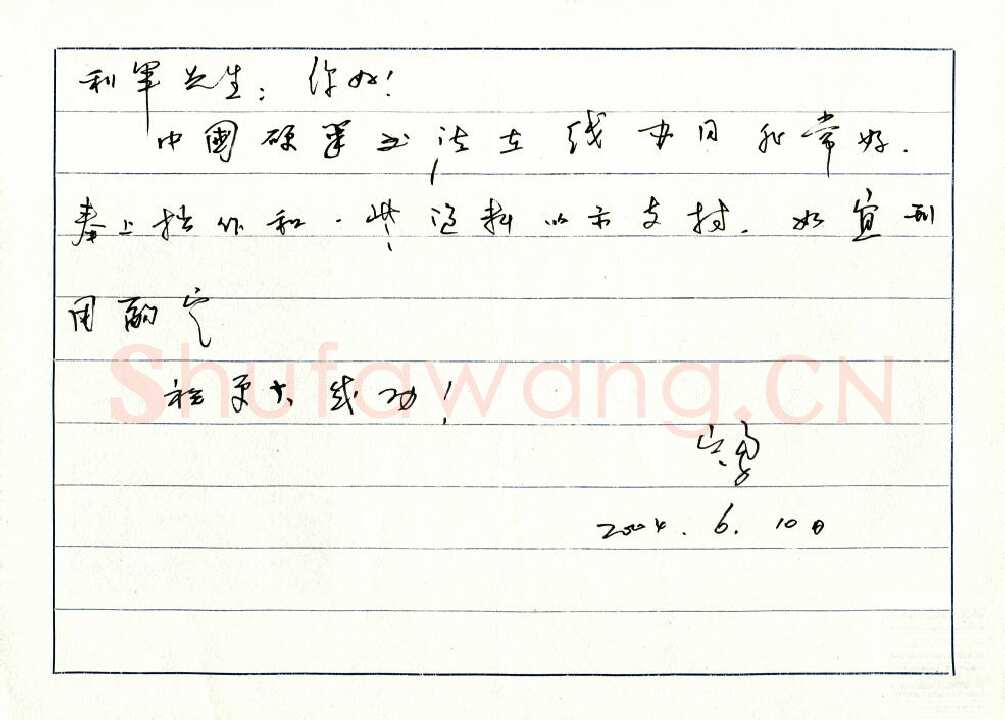 利军先生：你好！
中國硬筆书法在线办得非常好．
奉上拙作和一些资料以示支持．如宜刊
用酌定
祝更大成功！
2004．6．10日
Shufawang.CN